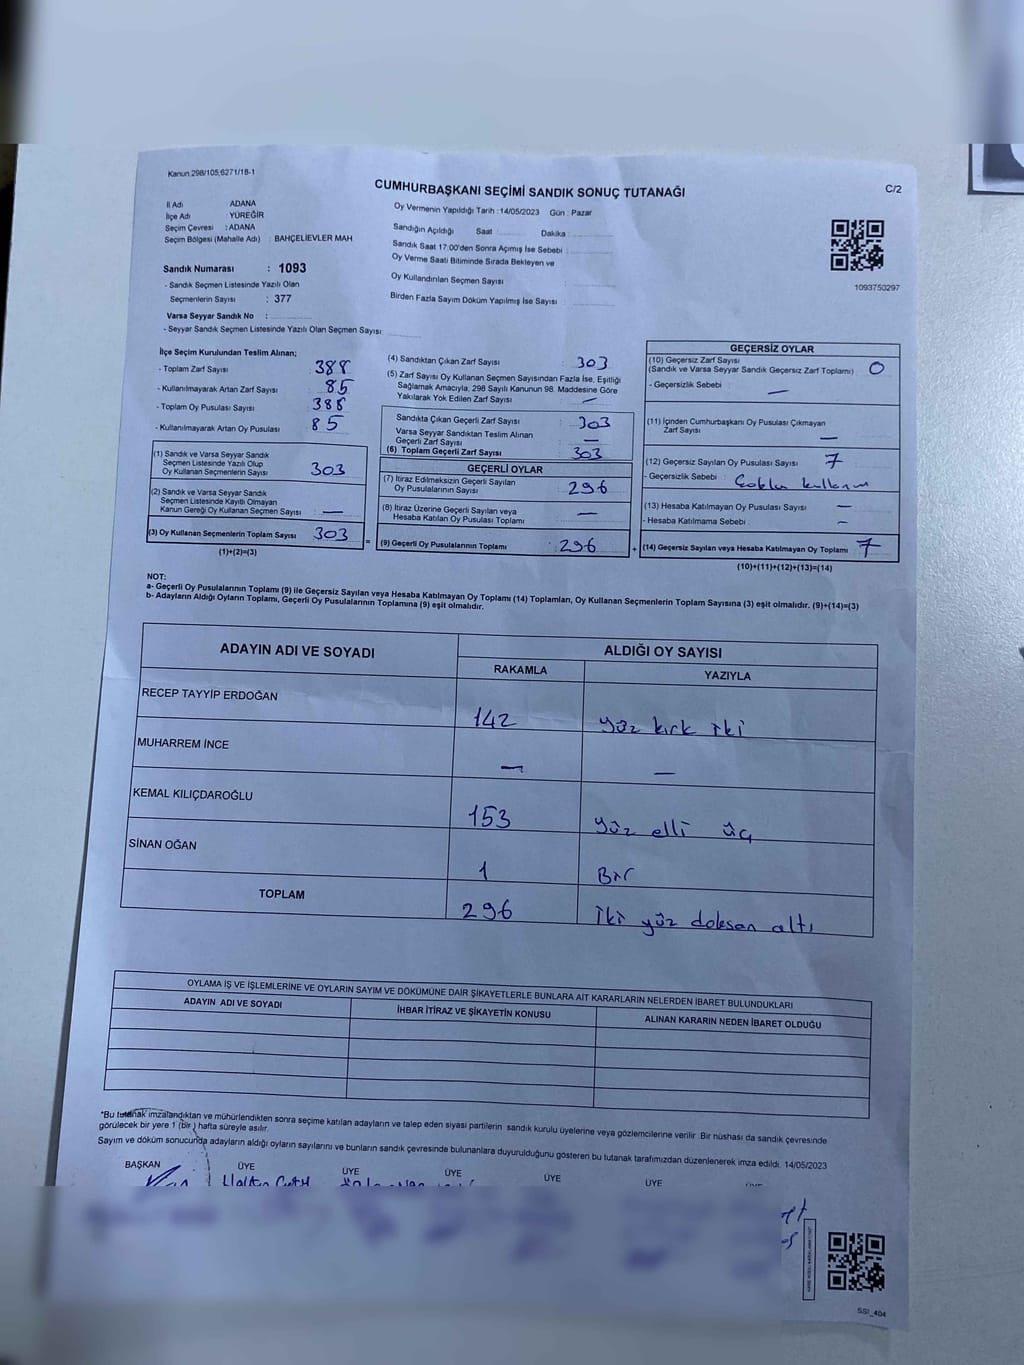 Kanun.298/105,6271/18-1
CUMHURBAŞKANI SEÇİMİ SANDIK SONUÇ TUTANAĞI
C/2
İl Adı ADANA
İlçe Adı YÜREĞİR
Seçim Çevresi : ADANA
Seçim Bölgesi (Mahalle Adı) : BAHÇELİEVLER MAH
Sandık Numarası : 1093
- Sandık Seçmen Listesinde Yazılı Olan
Seçmenlerin Sayısı : 377
Varsa Seyyar Sandık No :
- Seyyar Sandık Seçmen Listesinde Yazılı Olan Seçmen Sayısı:
Oy Vermenin Yapıldığı Tarih : 14/05/2023 Gün : Pazar
Sandığın Açıldığı Saat : Dakika :
Sandık Saat 17:00'den Sonra Açımış İse Sebebi :
Oy Verme Saati Bitiminde Sırada Bekleyen ve
Oy Kullandırılan Seçmen Sayısı :
Birden Fazla Sayım Döküm Yapılmış İse Sayısı :
1093750297
İlçe Seçim Kurulundan Teslim Alınan;
- Toplam Zarf Sayısı : 388
- Kullanılmayarak Artan Zarf Sayısı : 85
- Toplam Oy Pusulası Sayısı : 388
- Kullanılmayarak Artan Oy Pusulası : 85
(1) Sandık ve Varsa Seyyar Sandık
Seçmen Listesinde Yazılı Olup
Oy Kullanan Seçmenlerin Sayısı : 303
(2) Sandık ve Varsa Seyyar Sandık
Seçmen Listesinde Kayıtlı Olmayan
Kanun Gereği Oy Kullanan Seçmen Sayısı : —
(3) Oy Kullanan Seçmenlerin Toplam Sayısı : 303
(1)+(2)=(3)
=
(4) Sandıktan Çıkan Zarf Sayısı : 303
(5) Zarf Sayısı Oy Kullanan Seçmen Sayısından Fazla İse, Eşitliği
Sağlamak Amacıyla, 298 Sayılı Kanunun 98. Maddesine Göre
Yakılarak Yok Edilen Zarf Sayısı : —
Sandıkta Çıkan Geçerli Zarf Sayısı : 303
Varsa Seyyar Sandıktan Teslim Alınan
Geçerli Zarf Sayısı : —
(6) Toplam Geçerli Zarf Sayısı : 303
GEÇERLİ OYLAR
(7) İtiraz Edilmeksizin Geçerli Sayılan
Oy Pusulalarının Sayısı : 296
(8) İtiraz Üzerine Geçerli Sayılan veya
Hesaba Katılan Oy Pusulası Toplamı : —
(9) Geçerli Oy Pusulalarının Toplamı : 296
+
GEÇERSİZ OYLAR
(10) Geçersiz Zarf Sayısı
(Sandık ve Varsa Seyyar Sandık Geçersiz Zarf Toplamı) : 0
- Geçersizlik Sebebi : —
(11) İçinden Cumhurbaşkanı Oy Pusulası Çıkmayan
Zarf Sayısı : —
(12) Geçersiz Sayılan Oy Pusulası Sayısı : 7
- Geçersizlik Sebebi :
(13) Hesaba Katılmayan Oy Pusulası Sayısı : —
- Hesaba Katılmama Sebebi : —
(14) Geçersiz Sayılan veya Hesaba Katılmayan Oy Toplamı : 7
(10)+(11)+(12)+(13)=(14)
NOT:
a- Geçerli Oy Pusulalarının Toplamı (9) ile Geçersiz Sayılan veya Hesaba Katılmayan Oy Toplamı (14) Toplamları, Oy Kullanan Seçmenlerin Toplam Sayısına (3) eşit olmalıdır. (9)+(14)=(3)
b- Adayların Aldığı Oyların Toplamı, Geçerli Oy Pusulalarının Toplamına (9) eşit olmalıdır.
ADAYIN ADI VE SOYADI ALDIĞI OY SAYISI
RAKAMLA YAZIYLA
RECEP TAYYİP ERDOĞAN 142 yüz kırk iki
MUHARREM İNCE — —
KEMAL KILIÇDAROĞLU 153 yüz elli üç
SİNAN OĞAN 1 Bir
TOPLAM 296 iki yüz doksan altı
OYLAMA İŞ VE İŞLEMLERİNE VE OYLARIN SAYIM VE DÖKÜMÜNE DAİR ŞİKAYETLERLE BUNLARA AİT KARARLARIN NELERDEN İBARET BULUNDUKLARI
ADAYIN ADI VE SOYADI İHBAR İTİRAZ VE ŞİKAYETİN KONUSU ALINAN KARARIN NEDEN İBARET OLDUĞU
*Bu tutanak imzalandıktan ve mühürlendikten sonra seçime katılan adayların ve talep eden siyasi partilerin sandık kurulu üyelerine veya gözlemcilerine verilir. Bir nüshası da sandık çevresinde
görülecek bir yere 1 (bir) hafta süreyle asılır.
Sayım ve döküm sonucunda adayların aldığı oyların sayılarını ve bunların sandık çevresinde bulunanlara duyurulduğunu gösteren bu tutanak tarafımızdan düzenlenerek imza edildi. 14/05/2023
BAŞKAN ÜYE ÜYE ÜYE ÜYE ÜYE
SSI_404